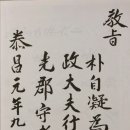 敎旨
朴自凝爲
政大夫行
光郡守者
泰昌元年九